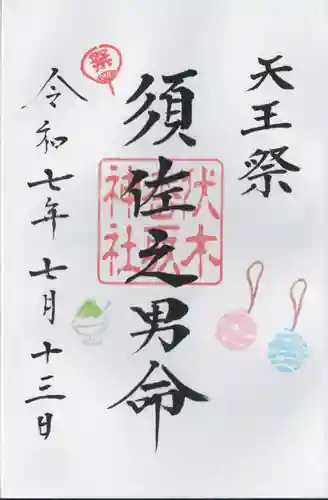 天王祭
須佐之男命
令和七年七月十三日
祭
伏木
神社